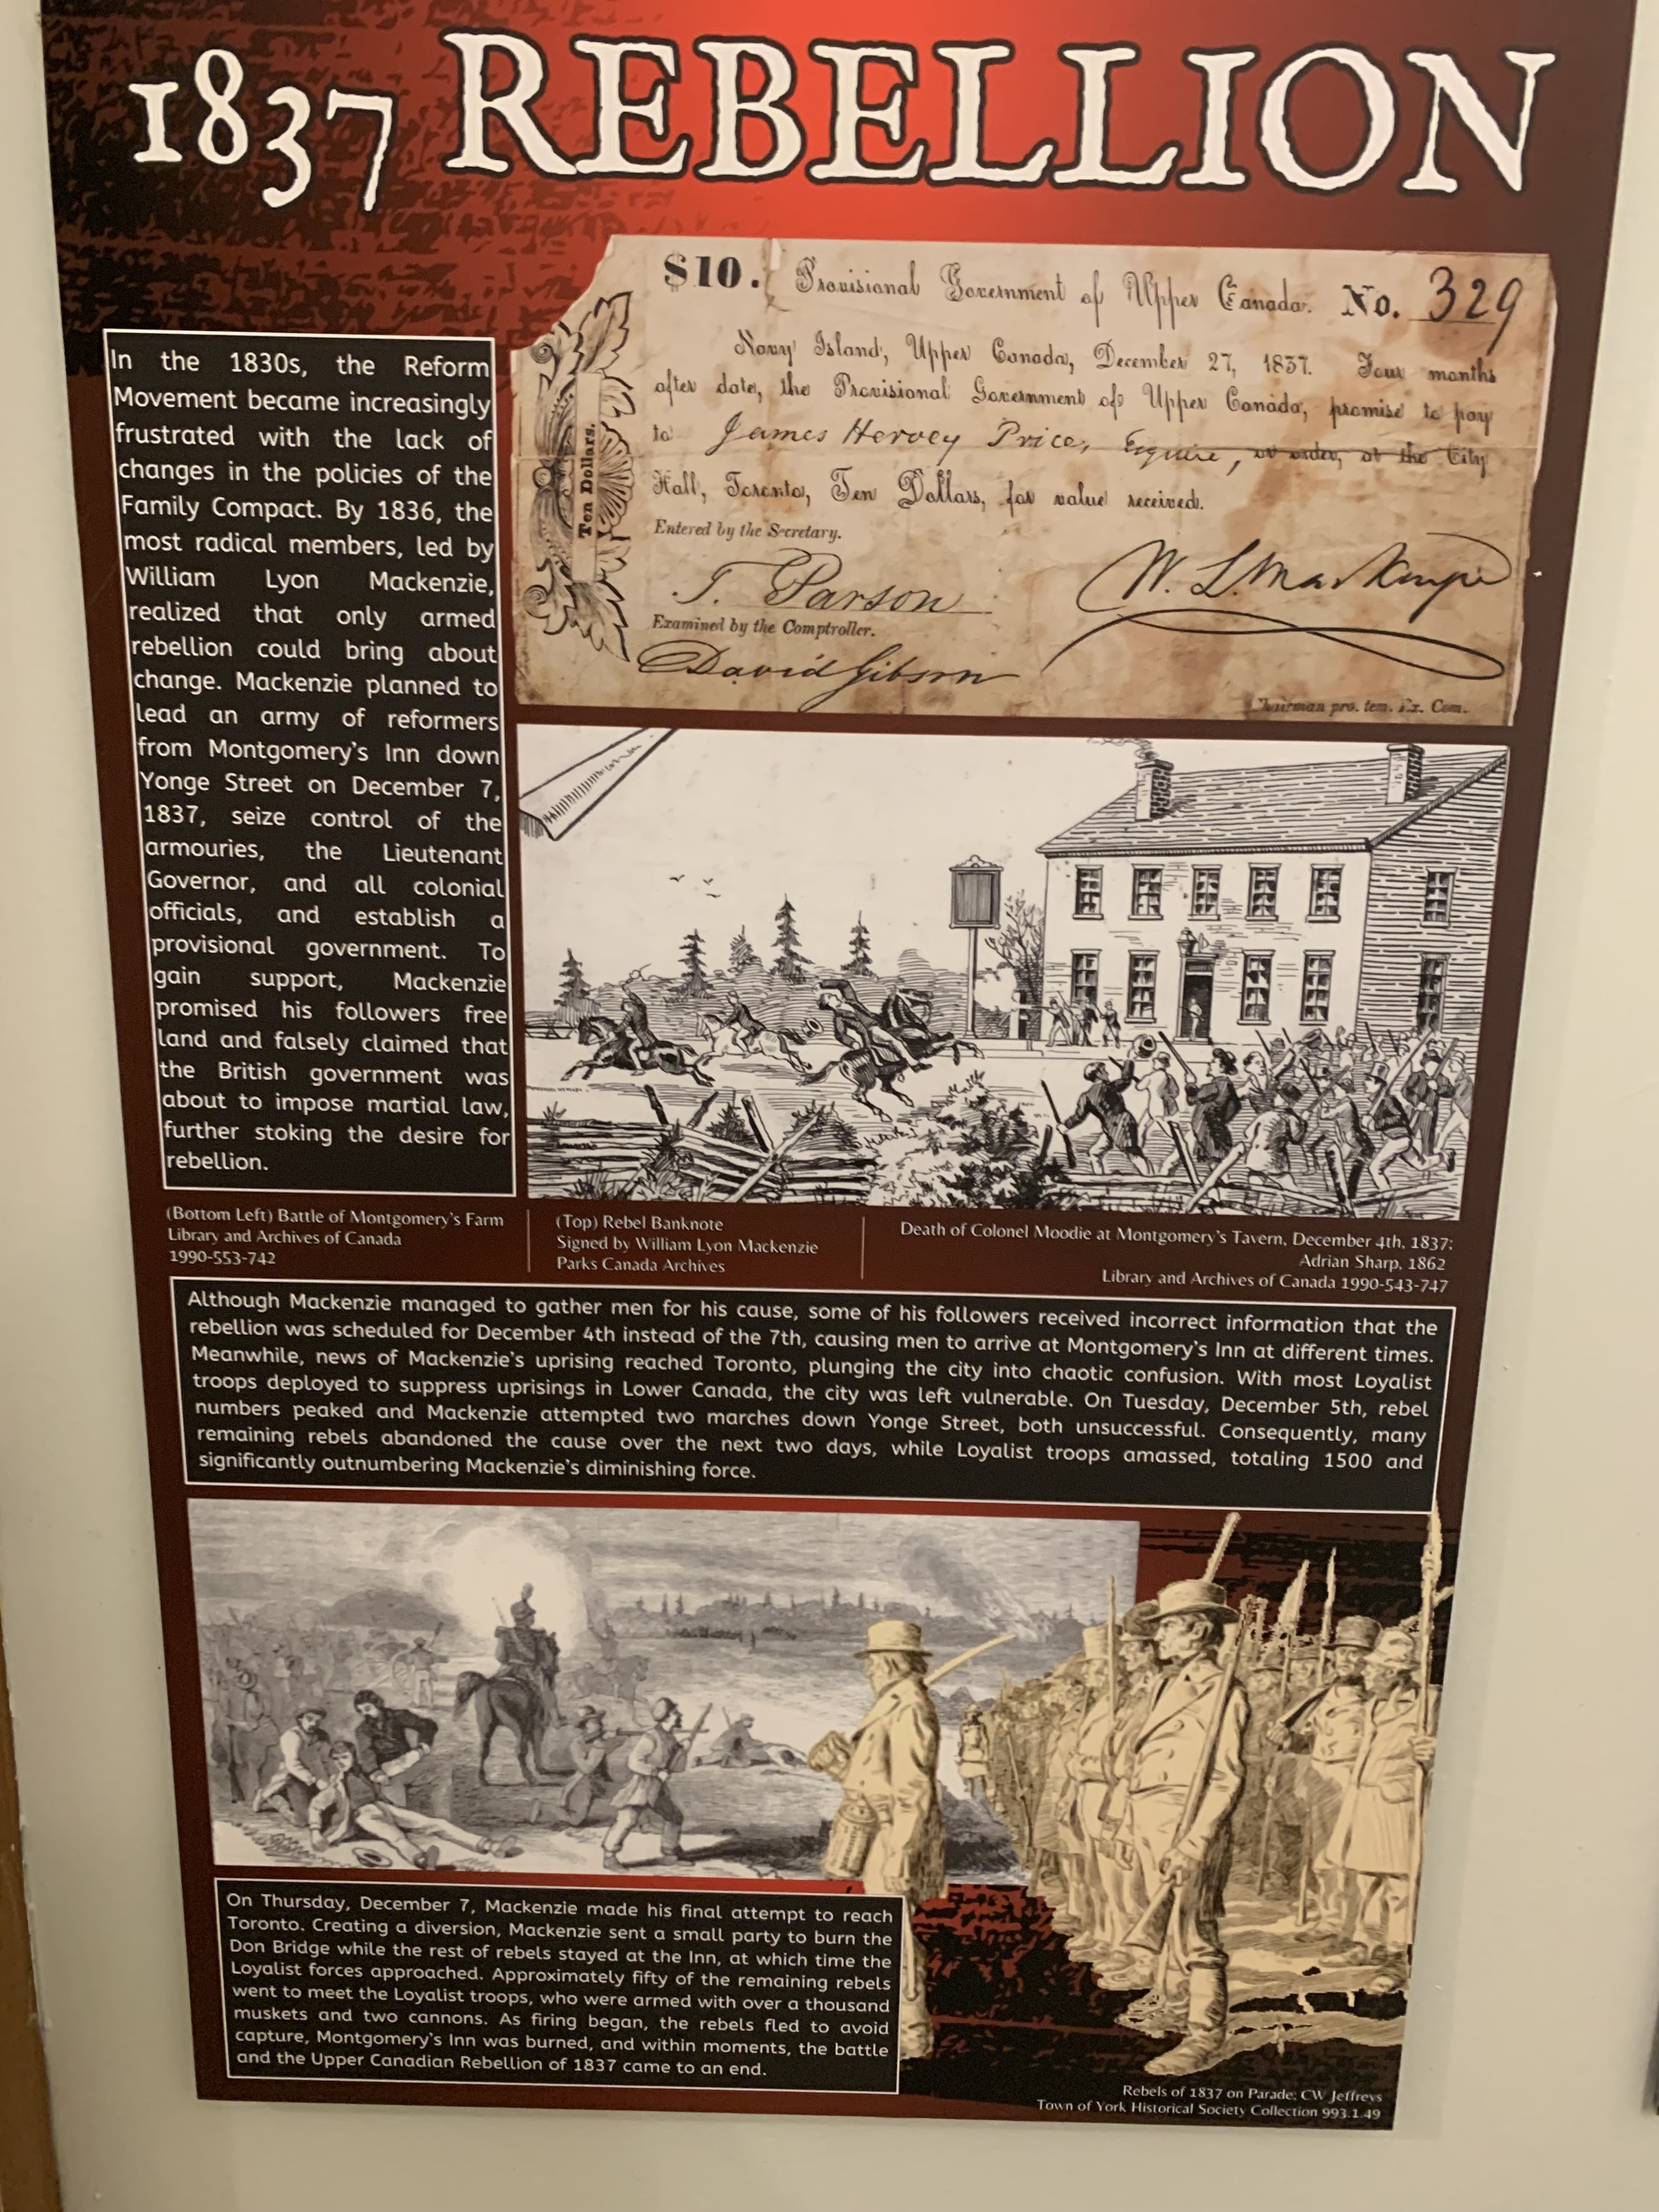 1837 REBELLION
$10. Provisional Government of Upper Canada. No. 329
Navy Island, Upper Canada, December 27, 1837. Four months
after date, the Provisional Government of Upper Canada, promise to pay
to James Hervey Price, Esquire, or order, at the City
Hall, Toronto, Ten Dollars, for value received.
Ten Dollars.
Entered by the Secretary.
T. Parson
W. L. Mackenzie
Examined by the Comptroller.
David Gibson
Chairman pro. tem. Ex. Com.
In the 1830s, the Reform
Movement became increasingly
frustrated with the lack of
changes in the policies of the
Family Compact. By 1836, the
most radical members, led by
William Lyon Mackenzie,
realized that only armed
rebellion could bring about
change. Mackenzie planned to
lead an army of reformers
from Montgomery's Inn down
Yonge Street on December 7,
1837, seize control of the
armouries, the Lieutenant
Governor, and all colonial
officials, and establish a
provisional government. To
gain support, Mackenzie
promised his followers free
land and falsely claimed that
the British government was
about to impose martial law,
further stoking the desire for
rebellion.
(Bottom Left) Battle of Montgomery's Farm
Library and Archives of Canada
1990-553-742
(Top) Rebel Banknote
Signed by William Lyon Mackenzie
Parks Canada Archives
Death of Colonel Moodie at Montgomery's Tavern, December 4th, 1837;
Adrian Sharp, 1862
Library and Archives of Canada 1990-543-747
Although Mackenzie managed to gather men for his cause, some of his followers received incorrect information that the
rebellion was scheduled for December 4th instead of the 7th, causing men to arrive at Montgomery's Inn at different times.
Meanwhile, news of Mackenzie's uprising reached Toronto, plunging the city into chaotic confusion. With most Loyalist
troops deployed to suppress uprisings in Lower Canada, the city was left vulnerable. On Tuesday, December 5th, rebel
numbers peaked and Mackenzie attempted two marches down Yonge Street, both unsuccessful. Consequently, many
remaining rebels abandoned the cause over the next two days, while Loyalist troops amassed, totaling 1500 and
significantly outnumbering Mackenzie's diminishing force.
On Thursday, December 7, Mackenzie made his final attempt to reach
Toronto. Creating a diversion, Mackenzie sent a small party to burn the
Don Bridge while the rest of rebels stayed at the Inn, at which time the
Loyalist forces approached. Approximately fifty of the remaining rebels
went to meet the Loyalist troops, who were armed with over a thousand
muskets and two cannons. As firing began, the rebels fled to avoid
capture, Montgomery's Inn was burned, and within moments, the battle
and the Upper Canadian Rebellion of 1837 came to an end.
Rebels of 1837 on Parade; CW Jeffreys
Town of York Historical Society Collection 993.1.49